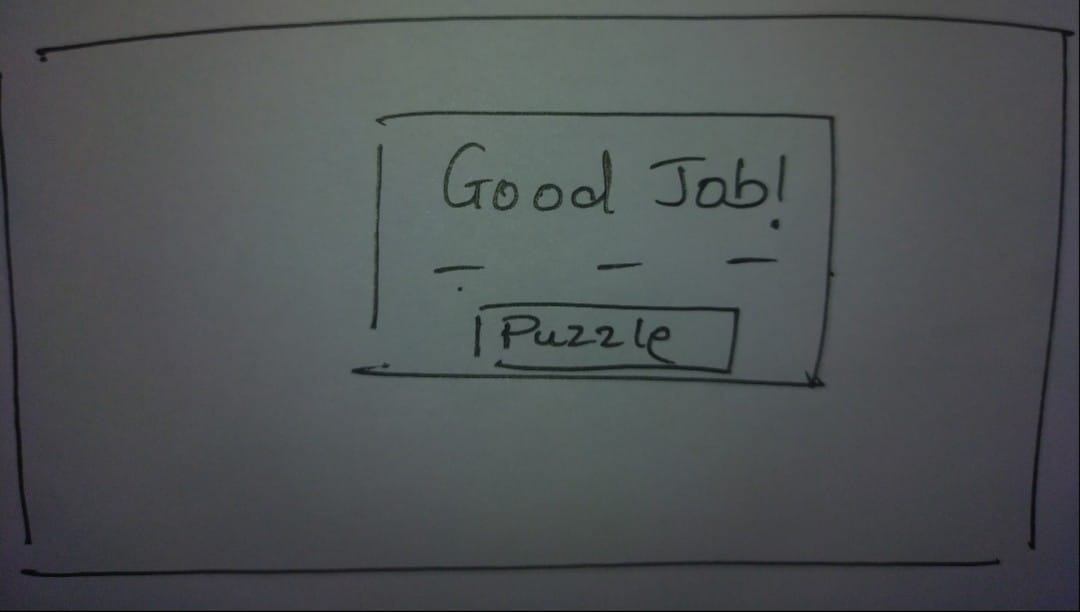 Good Job!
— — —
Puzzle